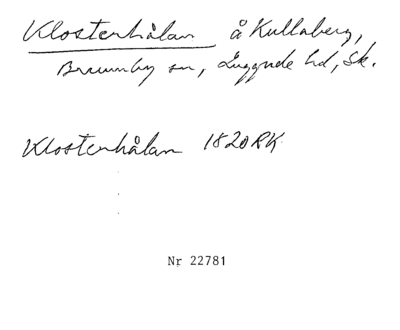 Klosterhålan å Kullaberg,
Brunnby sn, Luggude hd, Sk.
Klosterhålan 1820RK
Nr 22781